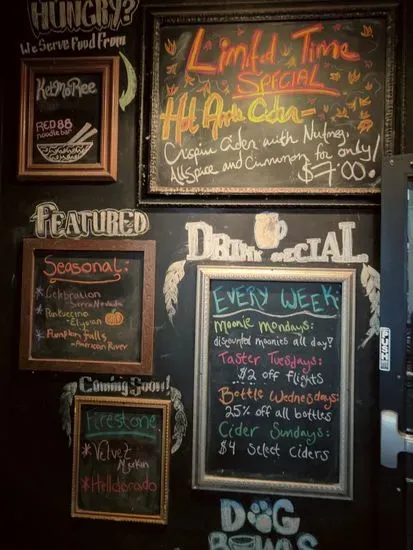 HUNGRY?
We Serve Food From
KetMoRee
RED 88
noodle bar
Limited Time
SPECIAL
Hot Apple Cider
Crispin Cider with Nutmeg,
Allspice and Cinnamon for only!
$7.00!
FEATURED
Seasonal:
* Celebration
Sierra Nevada
* Punkuccino
- Elysian
* Pumpkin falls
- American River
DRINK SPECIAL
EVERY WEEK:
Moonie Mondays:
discounted moonies all day?
Taster Tuesdays:
$2 off flights
Bottle Wednesdays:
25% off all bottles
Cider Sundays:
$4 Select Ciders
Coming Soon!
Firestone
* Velvet
Merkin
* Helldorado
DOG
BOWLS
PUSH